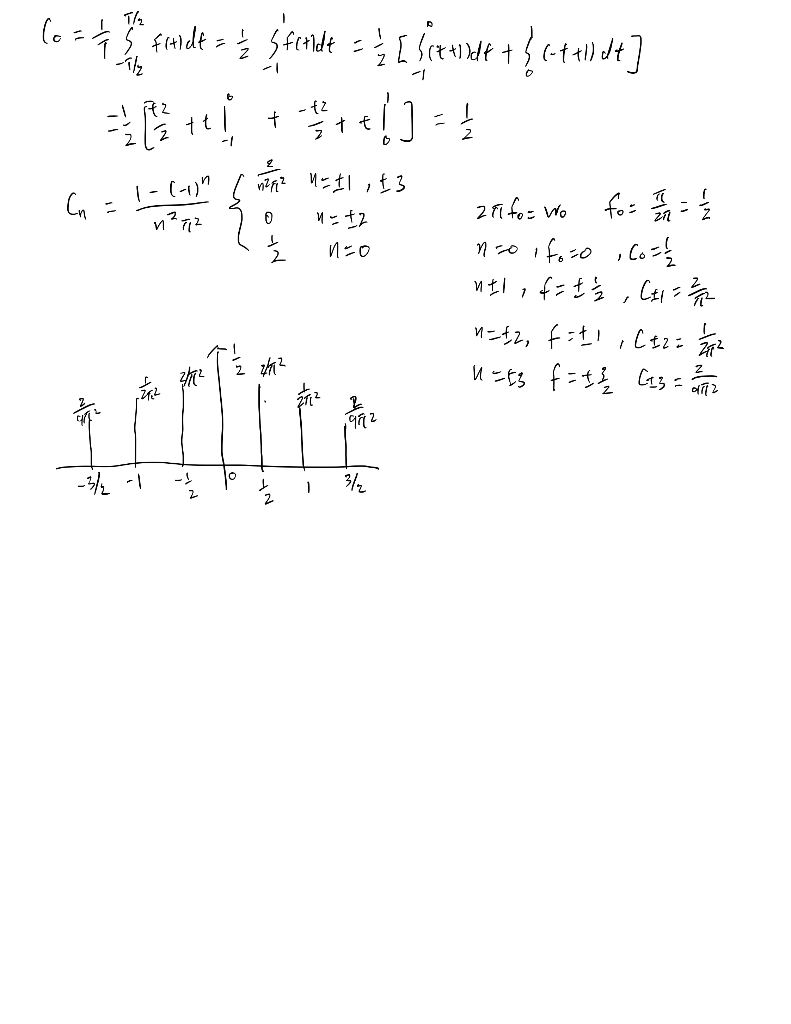 C₀ = 1/T ∫_{-T/2}^{T/2} f(t)dt = 1/2 ∫_{-1}^{1} f(t)dt = 1/2 [ ∫_{-1}^{0} (t+1)dt + ∫_{0}^{1} (-t+1)dt ]
= 1/2 [ t²/2 + t |_{-1}^{0} + -t²/2 + t |_{0}^{1} ] = 1/2
Cₙ = (1 - (-1)ⁿ)/(n²π²) { 2/(n²π²) n=±1, ±3
0 n=±2
1/2 n=0
2πf₀ = w₀ f₀ = π/2π = 1/2
n=0, f₀=0, C₀=1/2
n±1, f=±1/2, C±1 = 2/π²
n=±2, f=±1, C±2 = 1/2π²
n=±3 f=±3/2 C±3 = 2/9π²
2/9π² 1/2π² 2/π² 1/2 2/π² 1/2π² 2/9π²
-3/2 -1 -1/2 0 1/2 1 3/2